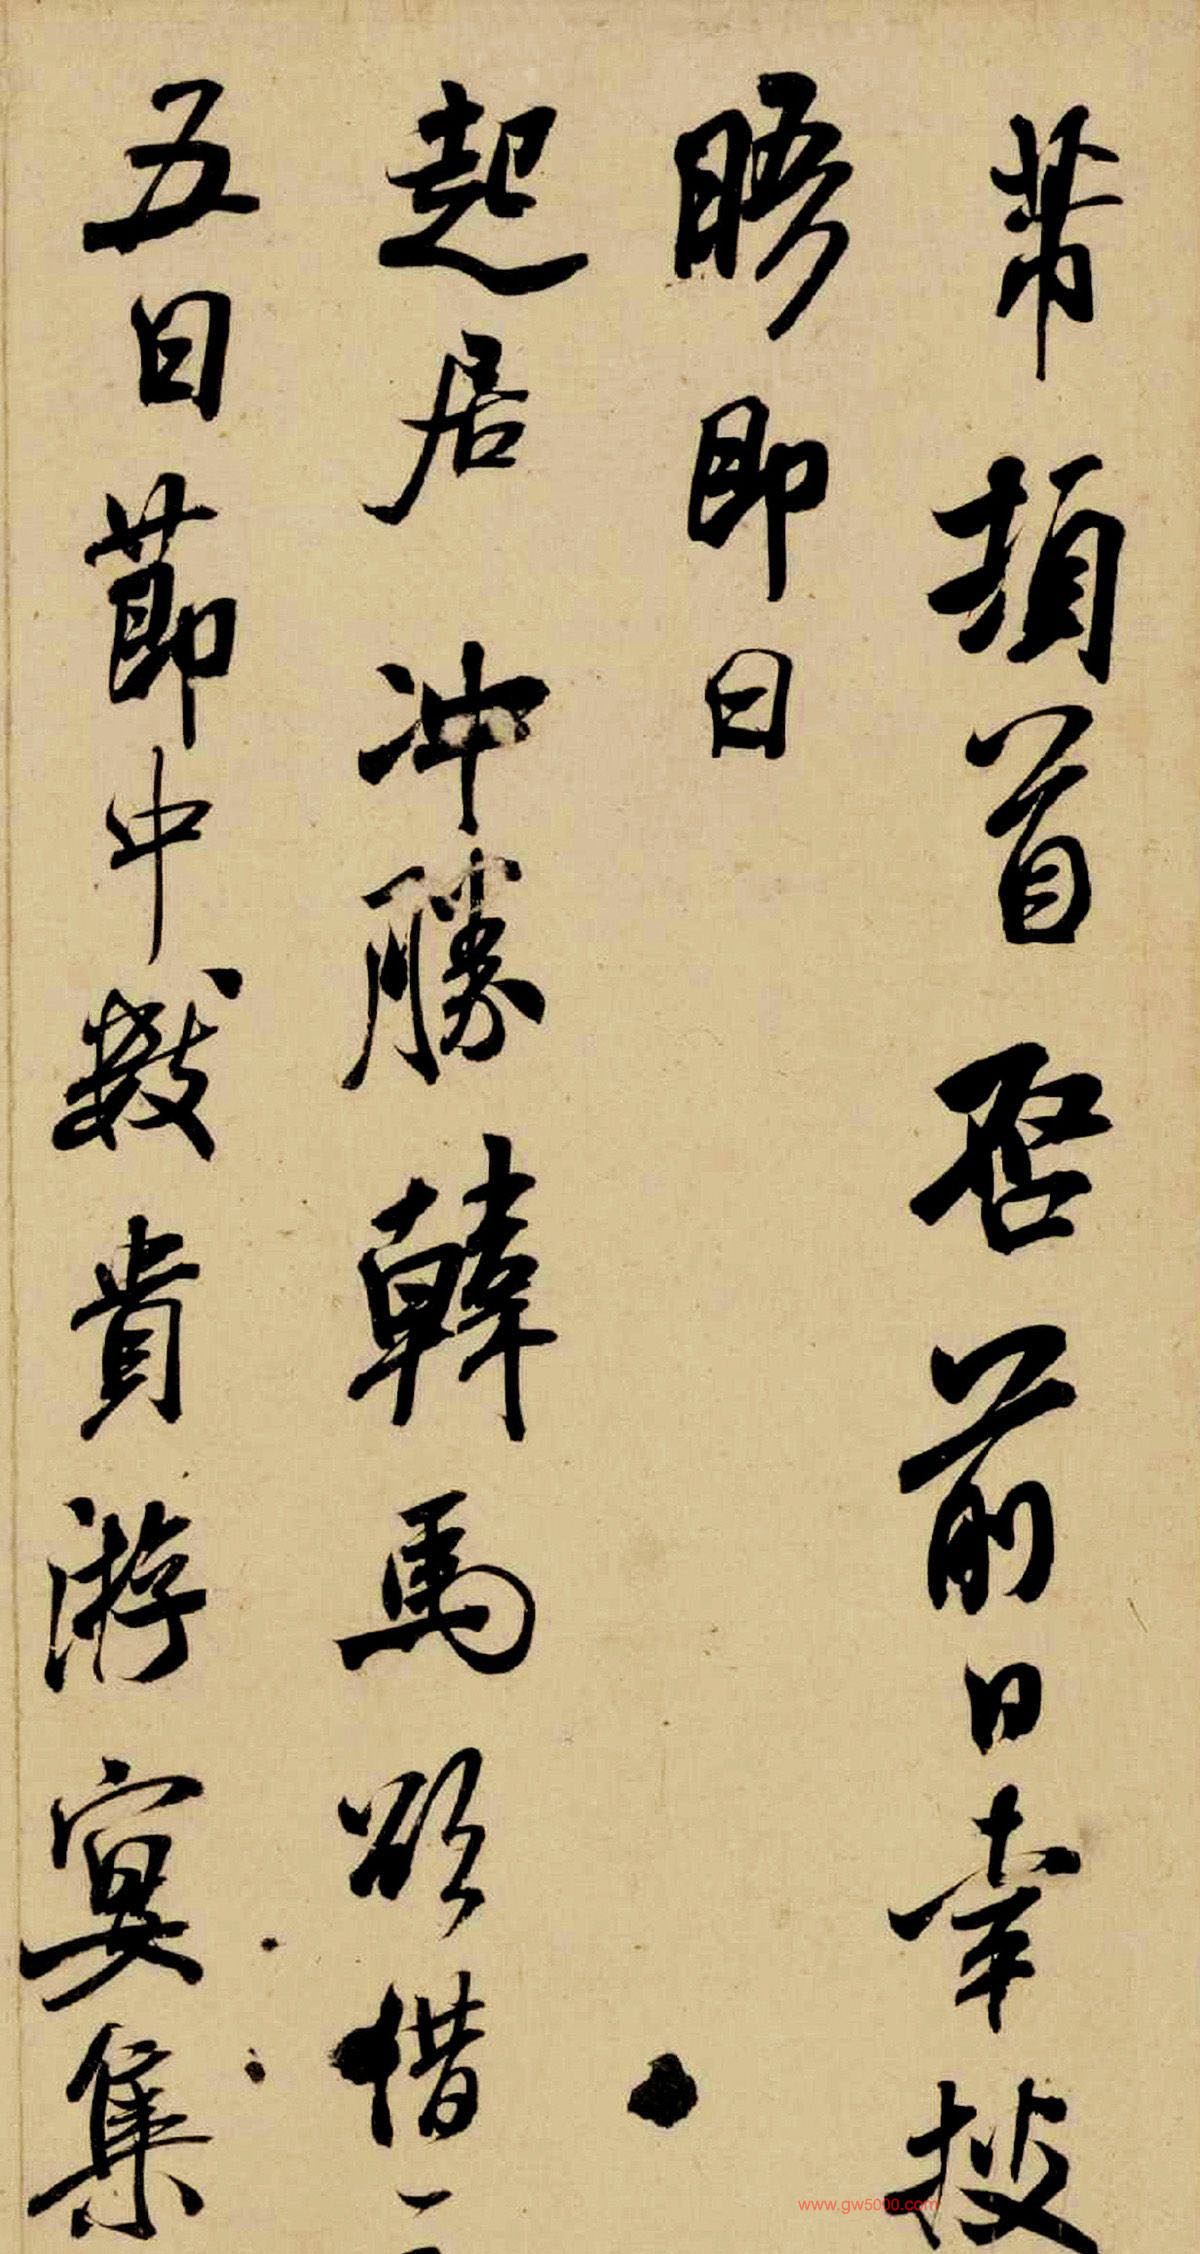 芾頓首啓前日幸披
晤即日
起居冲勝韓馬欲借
五日莭中數貴游宴集
www.gw5000.com